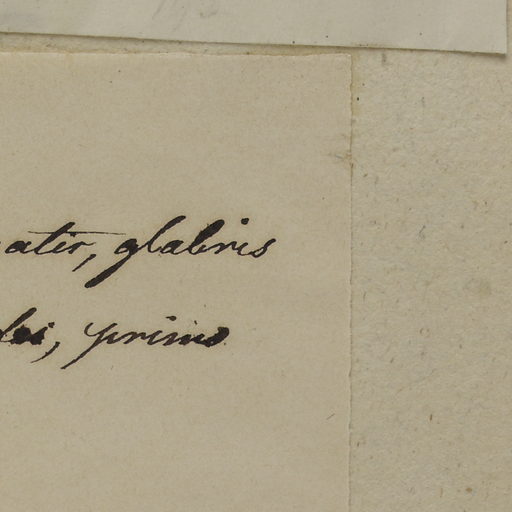 atis, glabris
lei, primo